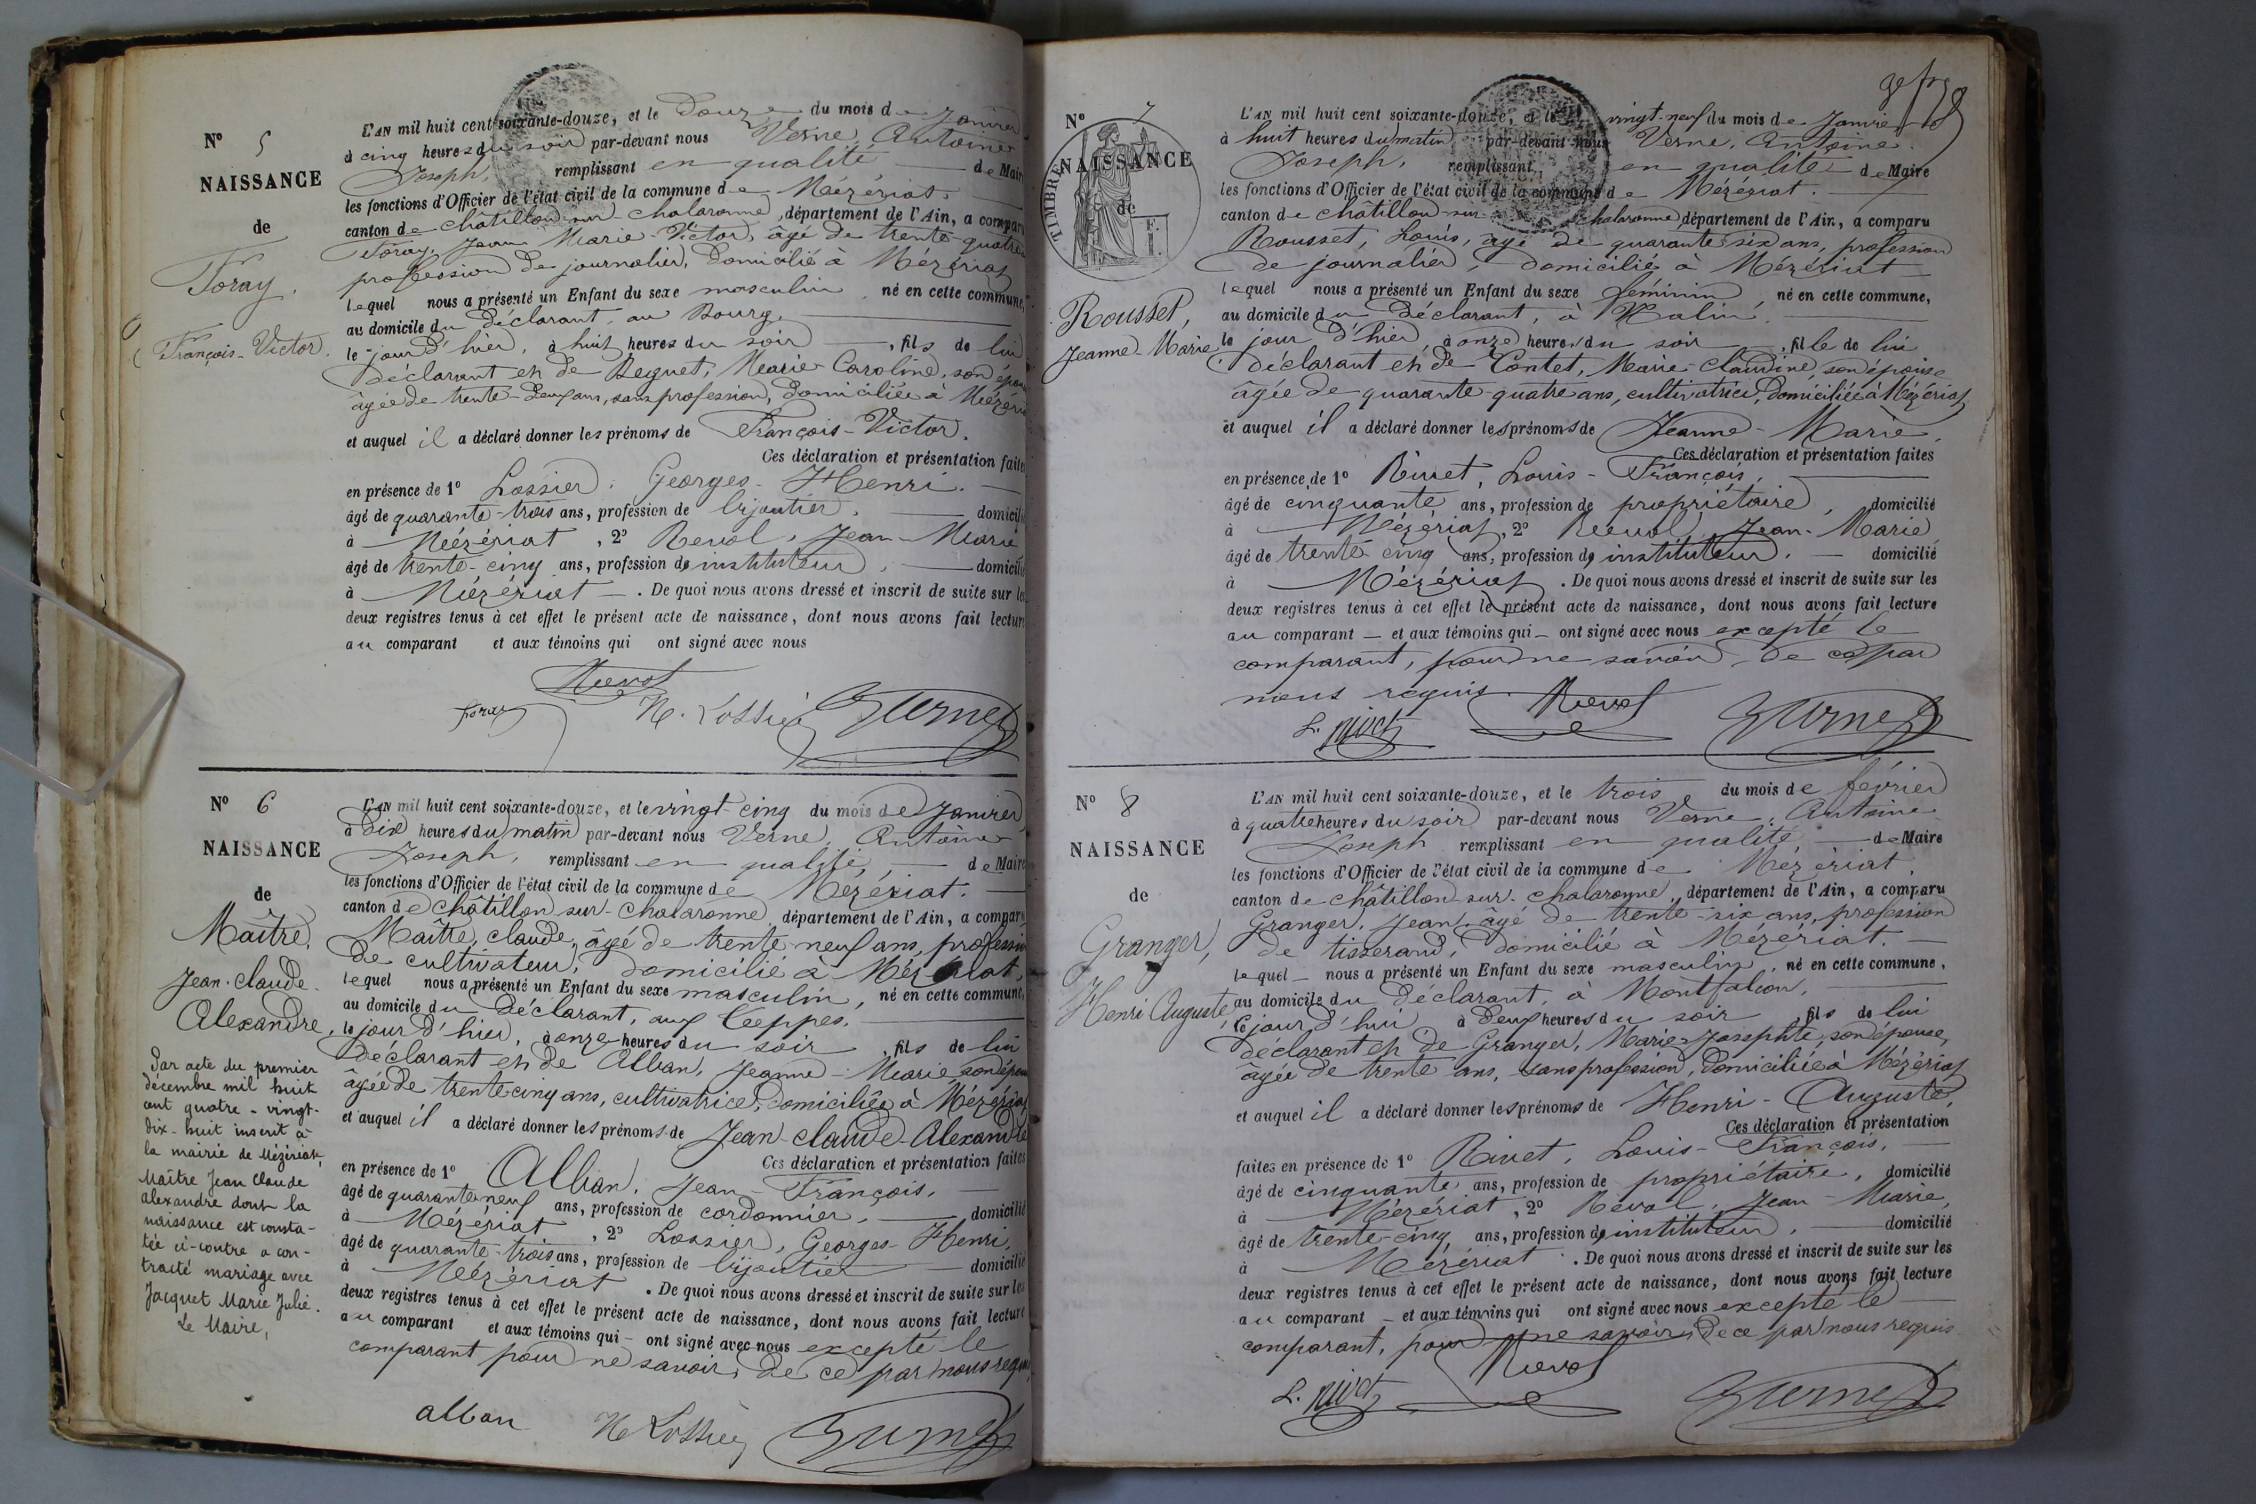 N° 5
NAISSANCE
de
Foray.
François-Victor.
L'AN mil huit cent soixante-douze, et le douze du mois de Janvier
à cinq heures du soir par-devant nous Verne, Antoine
Joseph, remplissant en qualité de Maire
les fonctions d'Officier de l'état civil de la commune de Mézériat.
canton de châtillon-sur-chalaronne, département de l'Ain, a comparu
Foray, Jean Marie-Victor, âgé de trente-quatre
profession de journalier, domicilié à Mézériat
lequel nous a présenté un Enfant du sexe masculin, né en cette commune,
au domicile du déclarant, au Bourg.
le jour d'hier, à huit heures du soir, fils de lui
déclarant et de Beguet, Marie-Caroline, son épouse
âgée de trente-deux ans, sans profession, domiciliée à Mézériat
et auquel il a déclaré donner les prénoms de François-Victor.
Ces déclaration et présentation faites
en présence de 1° Lossier, Georges-Henri.
âgé de quarante-trois ans, profession de bijoutier, domicilié
à Mézériat, 2° Revol, Jean-Marie
âgé de trente-cinq ans, profession de instituteur, domicilié
à Mézériat. De quoi nous avons dressé et inscrit de suite sur les
deux registres tenus à cet effet le présent acte de naissance, dont nous avons fait lecture
au comparant et aux témoins qui ont signé avec nous
Revol
foray H. Lossier Verne
N° 6
NAISSANCE
de
Maître,
Jean-claude
Alexandre,
Par acte du premier
décembre mil huit
cent quatre-vingt-
dix-huit inscrit à
la mairie de Mézériat,
Maître Jean Claude
alexandre dont la
naissance est consta-
tée ci-contre a con-
tracté mariage avec
Jacquet Marie Julie.
Le Maire,
L'AN mil huit cent soixante-douze, et le vingt cinq du mois de Janvier
à dix heures du matin par-devant nous Verne, Antoine
Joseph, remplissant en qualité de Maire
les fonctions d'Officier de l'état civil de la commune de Mézériat.
canton de châtillon-sur-chalaronne, département de l'Ain, a comparu
Maître, claude, âgé de trente-neuf ans, profession
de cultivateur, domicilié à Mézériat,
lequel nous a présenté un Enfant du sexe masculin, né en cette commune,
au domicile du déclarant, aux Teppes.
le jour d'hier, à onze heures du soir, fils de lui
déclarant et de Alban, Jeanne-Marie son épouse
âgée de trente cinq ans, cultivatrice, domiciliée à Mézériat
et auquel il a déclaré donner les prénoms de Jean-claude-Alexandre
Ces déclaration et présentation faites
en présence de 1° Alban, Jean-François.
âgé de quarante neuf ans, profession de cordonnier, domicilié
à Mézériat, 2° Lossier, Georges-Henri,
âgé de quarante-trois ans, profession de bijoutier domicilié
à Mézériat. De quoi nous avons dressé et inscrit de suite sur les
deux registres tenus à cet effet le présent acte de naissance, dont nous avons fait lecture
au comparant et aux témoins qui ont signé avec nous excepté le
comparant pour ne savoir, de ce par nous requis
alban H Lossier Verne
N° 7
NAISSANCE
de
TIMBRE
1 F.
Rousset,
Jeanne-Marie.
L'AN mil huit cent soixante-douze, et le vingt-neuf du mois de Janvier
à huit heures du matin par-devant nous Verne, Antoine
Joseph, remplissant en qualité de Maire
les fonctions d'Officier de l'état civil de la commune de Mézériat.
canton de châtillon-sur-chalaronne, département de l'Ain, a comparu
Rousset, Louis, âgé de quarante six ans, profession
de journalier, domicilié à Mézériat
lequel nous a présenté un Enfant du sexe féminin, né en cette commune,
au domicile du déclarant, à
le jour d'hier, à onze heures du soir, fille de lui
déclarant et de Contet, Marie-claudine, son épouse
âgée de quarante-quatre ans, cultivatrice, domiciliée à Mézériat
et auquel il a déclaré donner les prénoms de Jeanne-Marie.
Ces déclaration et présentation faites
en présence de 1° Rivet, Louis-François,
âgé de cinquante ans, profession de propriétaire, domicilié
à Mézériat, 2° Revol, Jean-Marie
âgé de trente cinq ans, profession de instituteur, domicilié
à Mézériat. De quoi nous avons dressé et inscrit de suite sur les
deux registres tenus à cet effet le présent acte de naissance, dont nous avons fait lecture
au comparant et aux témoins qui ont signé avec nous excepté le
comparant, pour ne savoir, de ce par
nous requis.
L. Rivet Revol Verne
N° 8
NAISSANCE
de
Granger,
Henri Auguste,
L'AN mil huit cent soixante-douze, et le trois du mois de février
à quatre heures du soir par-devant nous Verne, Antoine
Joseph remplissant en qualité de Maire
les fonctions d'Officier de l'état civil de la commune de Mézériat.
canton de châtillon-sur-chalaronne, département de l'Ain, a comparu
Granger, Jean, âgé de trente-six ans, profession
de tisserand, domicilié à Mézériat.
lequel nous a présenté un Enfant du sexe masculin, né en cette commune,
au domicile du déclarant, à Montfalcon,
ce jour d'hui à deux heures du soir, fils de lui
déclarant et de Granger, Marie-Josephte, son épouse,
âgée de trente ans, sans profession, domiciliée à Mézériat
et auquel il a déclaré donner les prénoms de Henri-Auguste,
Ces déclaration et présentation
faites en présence de 1° Rivet, Louis-François,
âgé de cinquante ans, profession de propriétaire, domicilié
à Mézériat, 2° Revol, Jean-Marie,
âgé de trente-cinq ans, profession de instituteur, domicilié
à Mézériat. De quoi nous avons dressé et inscrit de suite sur les
deux registres tenus à cet effet le présent acte de naissance, dont nous avons fait lecture
au comparant et aux témoins qui ont signé avec nous excepté le
comparant, pour ne savoir, de ce par nous requis
L. Rivet Revol Verne